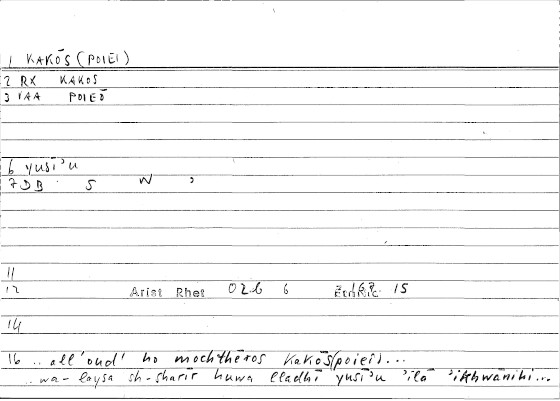 1 KAKŌS (POIEI)
2 RX KAKOS
3 VAA POIEŌ
6 yusī'u
7 DB S W '
11
12 Arist Rhet 026 6 15
14
16 ..all'oud' ho mochthēros kakōs(poieî)...
..wa-laysa sh-sharīr huwa lladhī yusī'u 'ilā 'ikhwānihi...